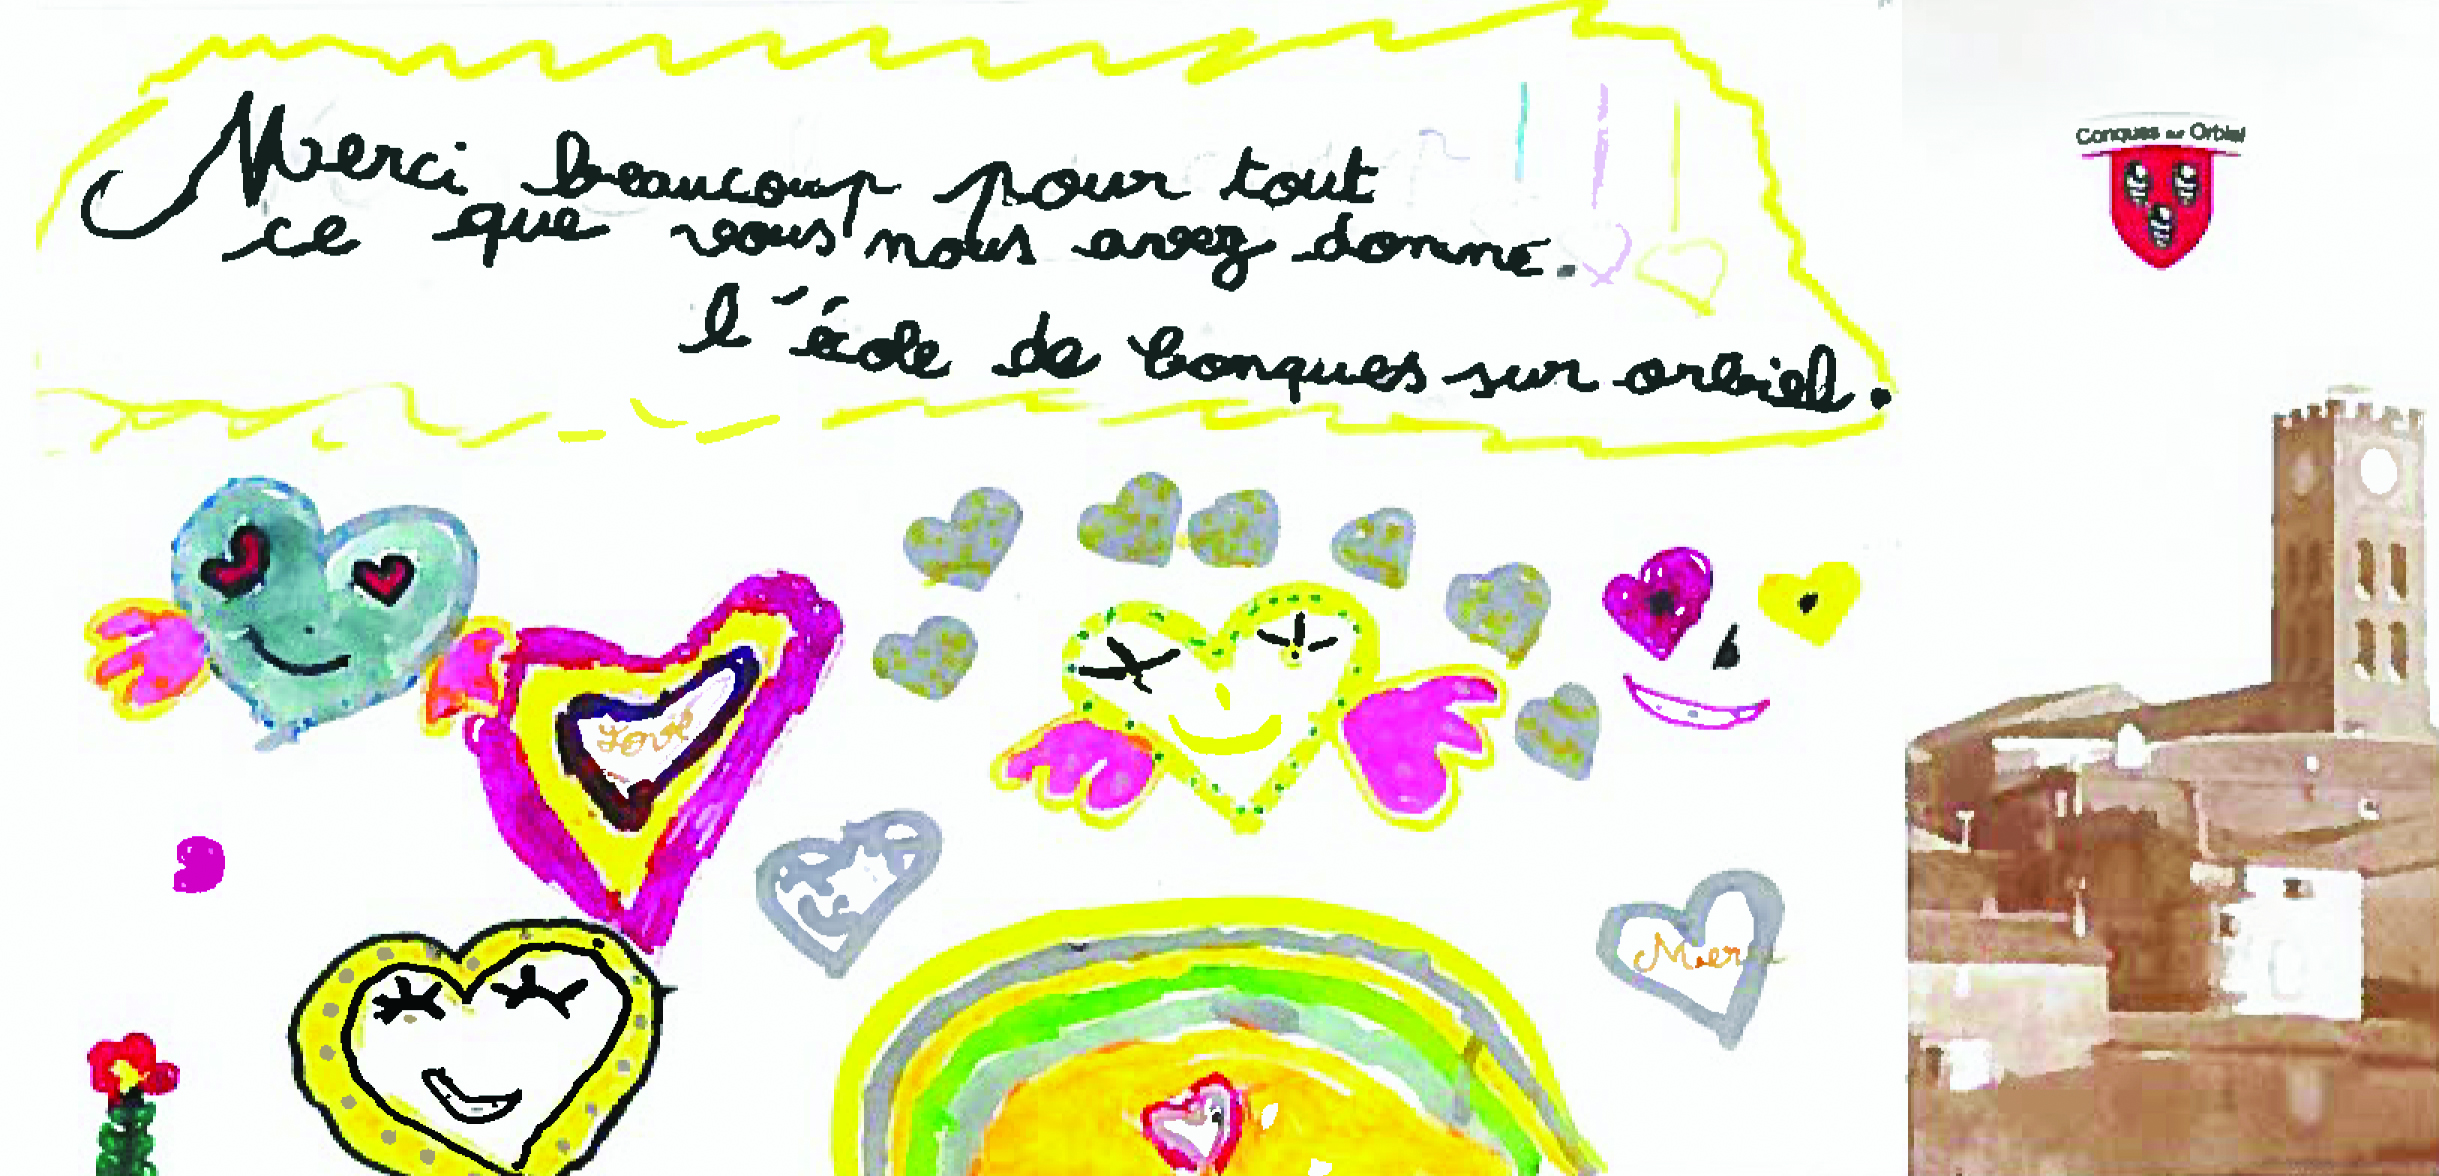 Merci beaucoup pour tout
ce que vous nous avez donné.
l'école de Conques sur orbiel.
Conques sur Orbiel
Love
Merci